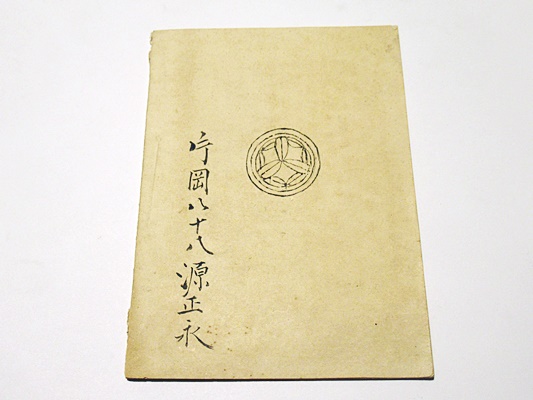 片岡八十八源正永